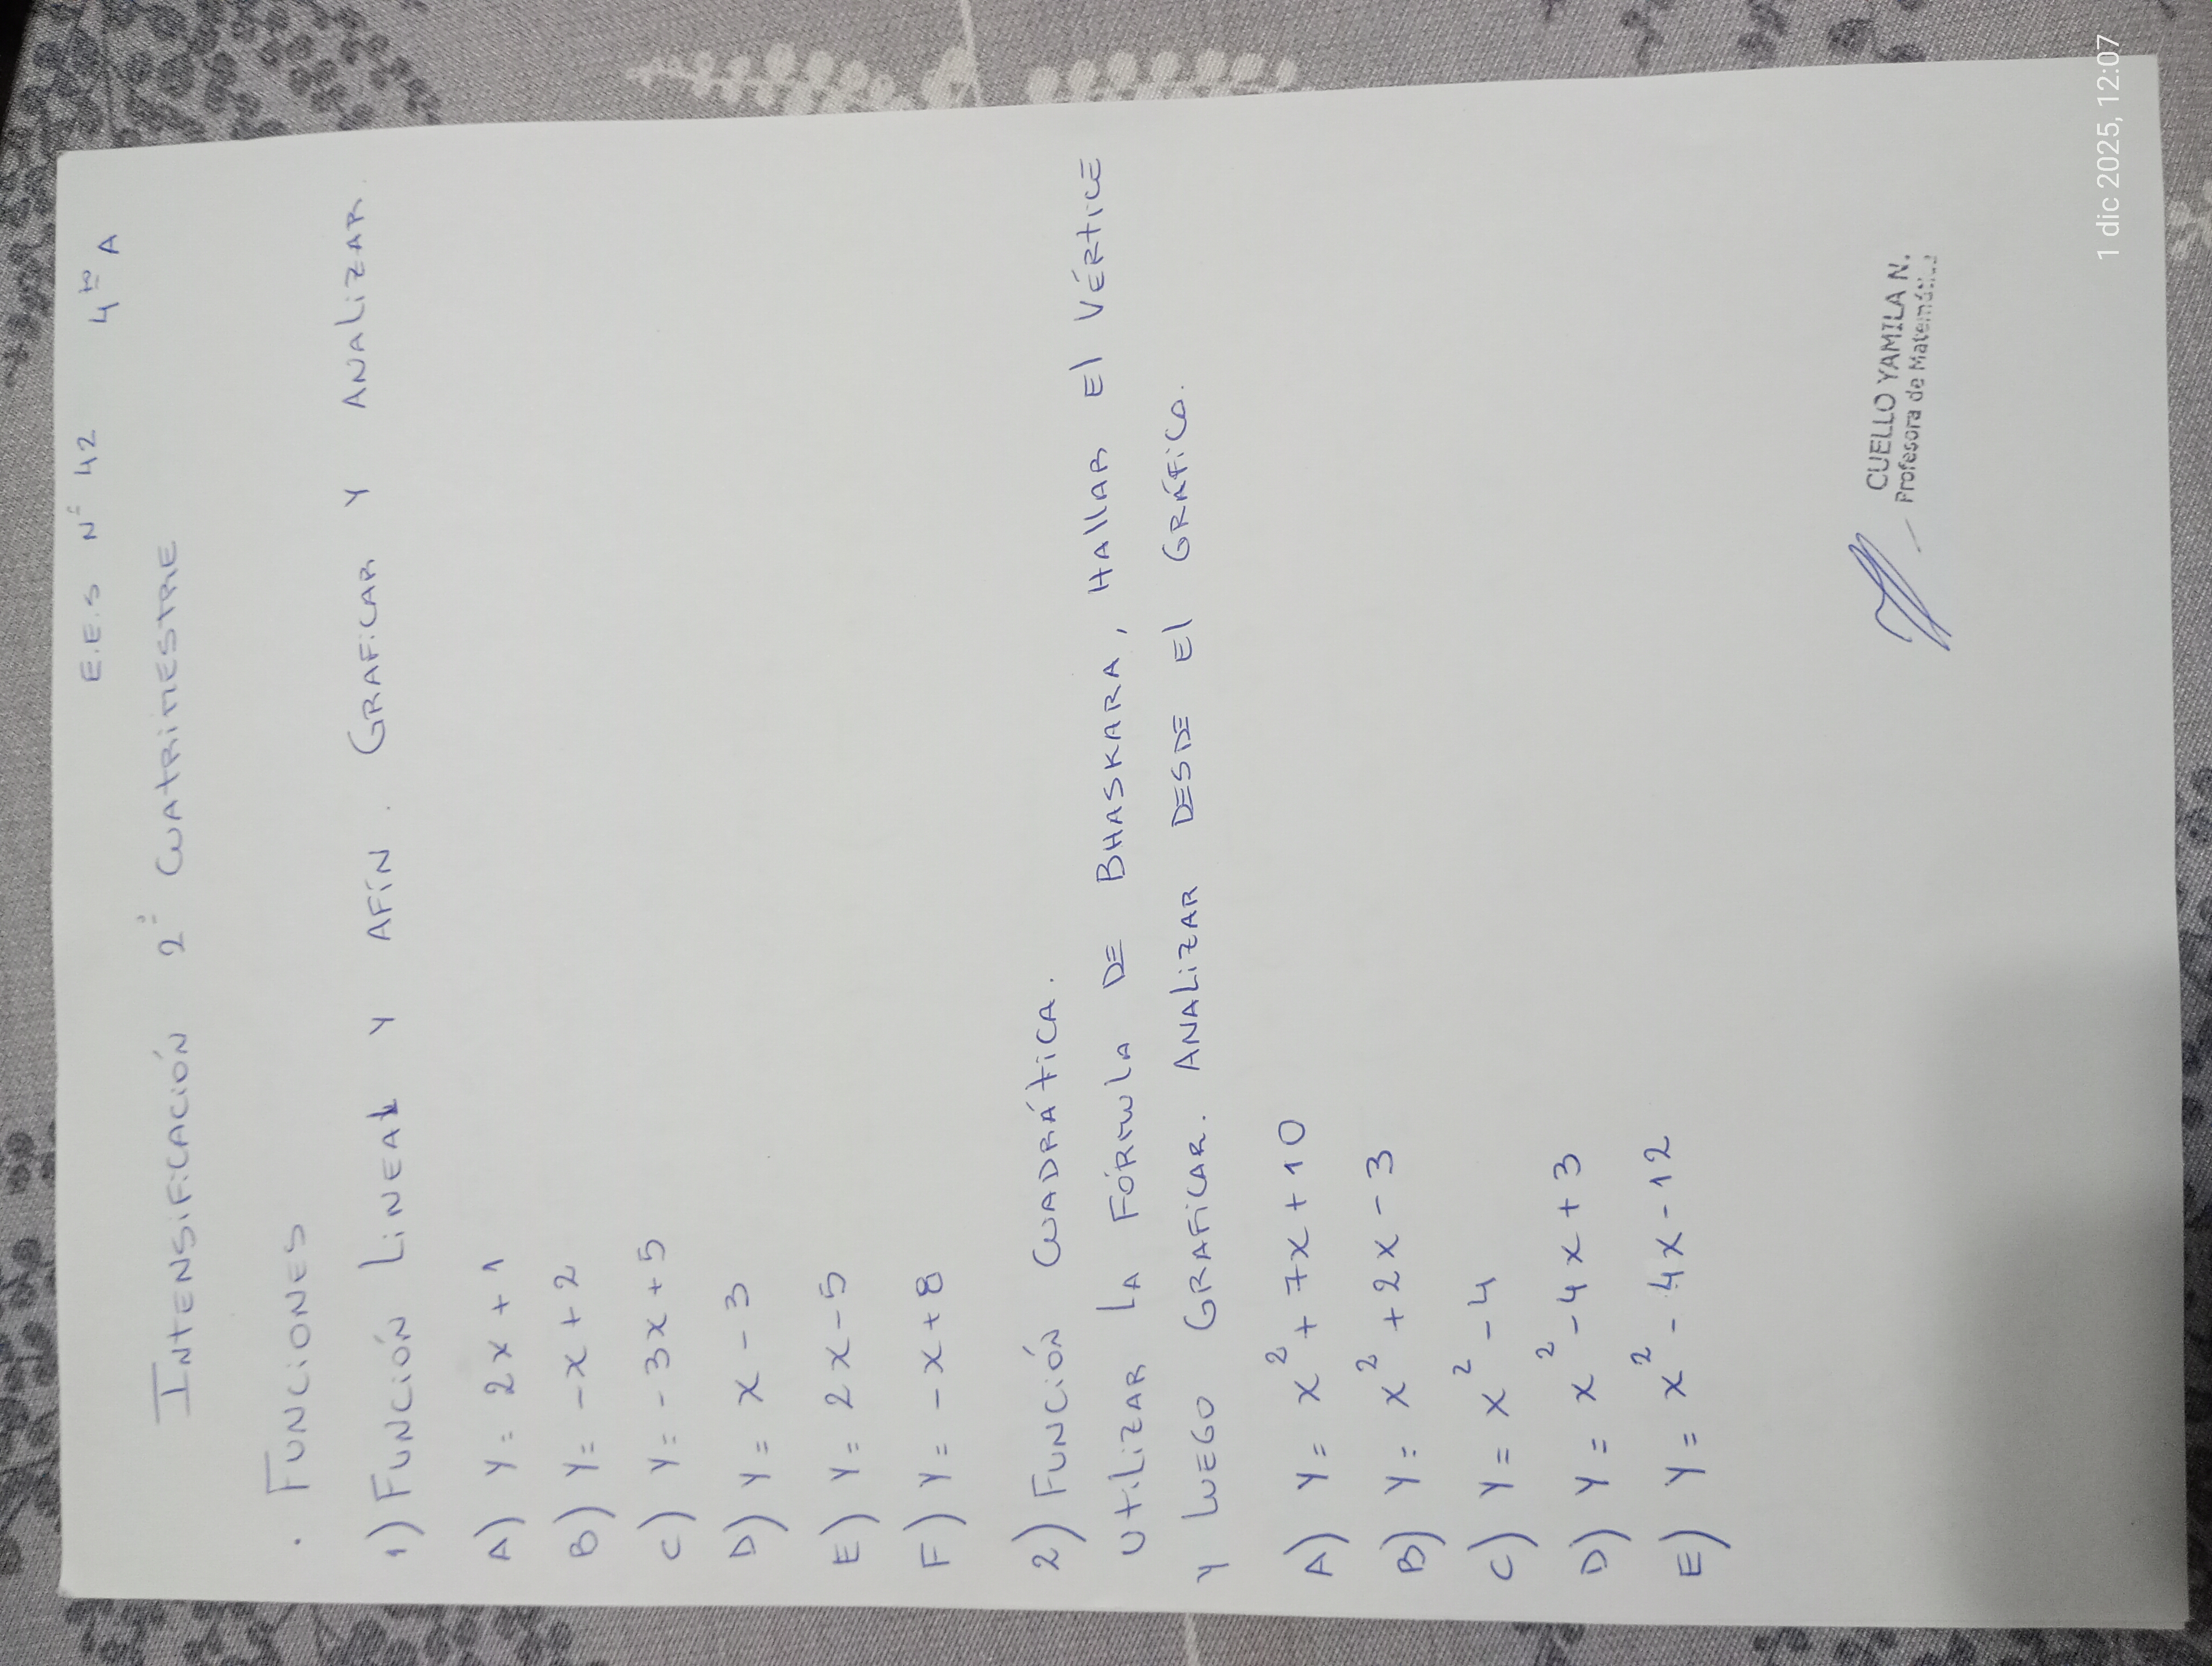 E.E.S Nº 42 4to A
INTENSIFICACIÓN 2º CUATRIMESTRE
. FUNCIONES
1) FUNCIÓN LINEAL Y AFÍN. GRAFICAR Y ANALIZAR.
A) Y = 2x + 1
B) Y = -x + 2
C) Y = -3x + 5
D) Y = x - 3
E) Y = 2x - 5
F) Y = -x + 8
2) FUNCIÓN CUADRÁTICA.
UTILIZAR LA FÓRMULA DE BHASKARA, HALLAR El VÉRTICE
Y LUEGO GRAFICAR. ANALIZAR DESDE El GRÁFICO.
A) Y = x² + 7x + 10
B) Y = x² + 2x - 3
C) Y = x² - 4
D) Y = x² - 4x + 3
E) Y = x² - 4x - 12
CUELLO YAMILA N.
Profesora de Matemática
1 dic 2025, 12:07